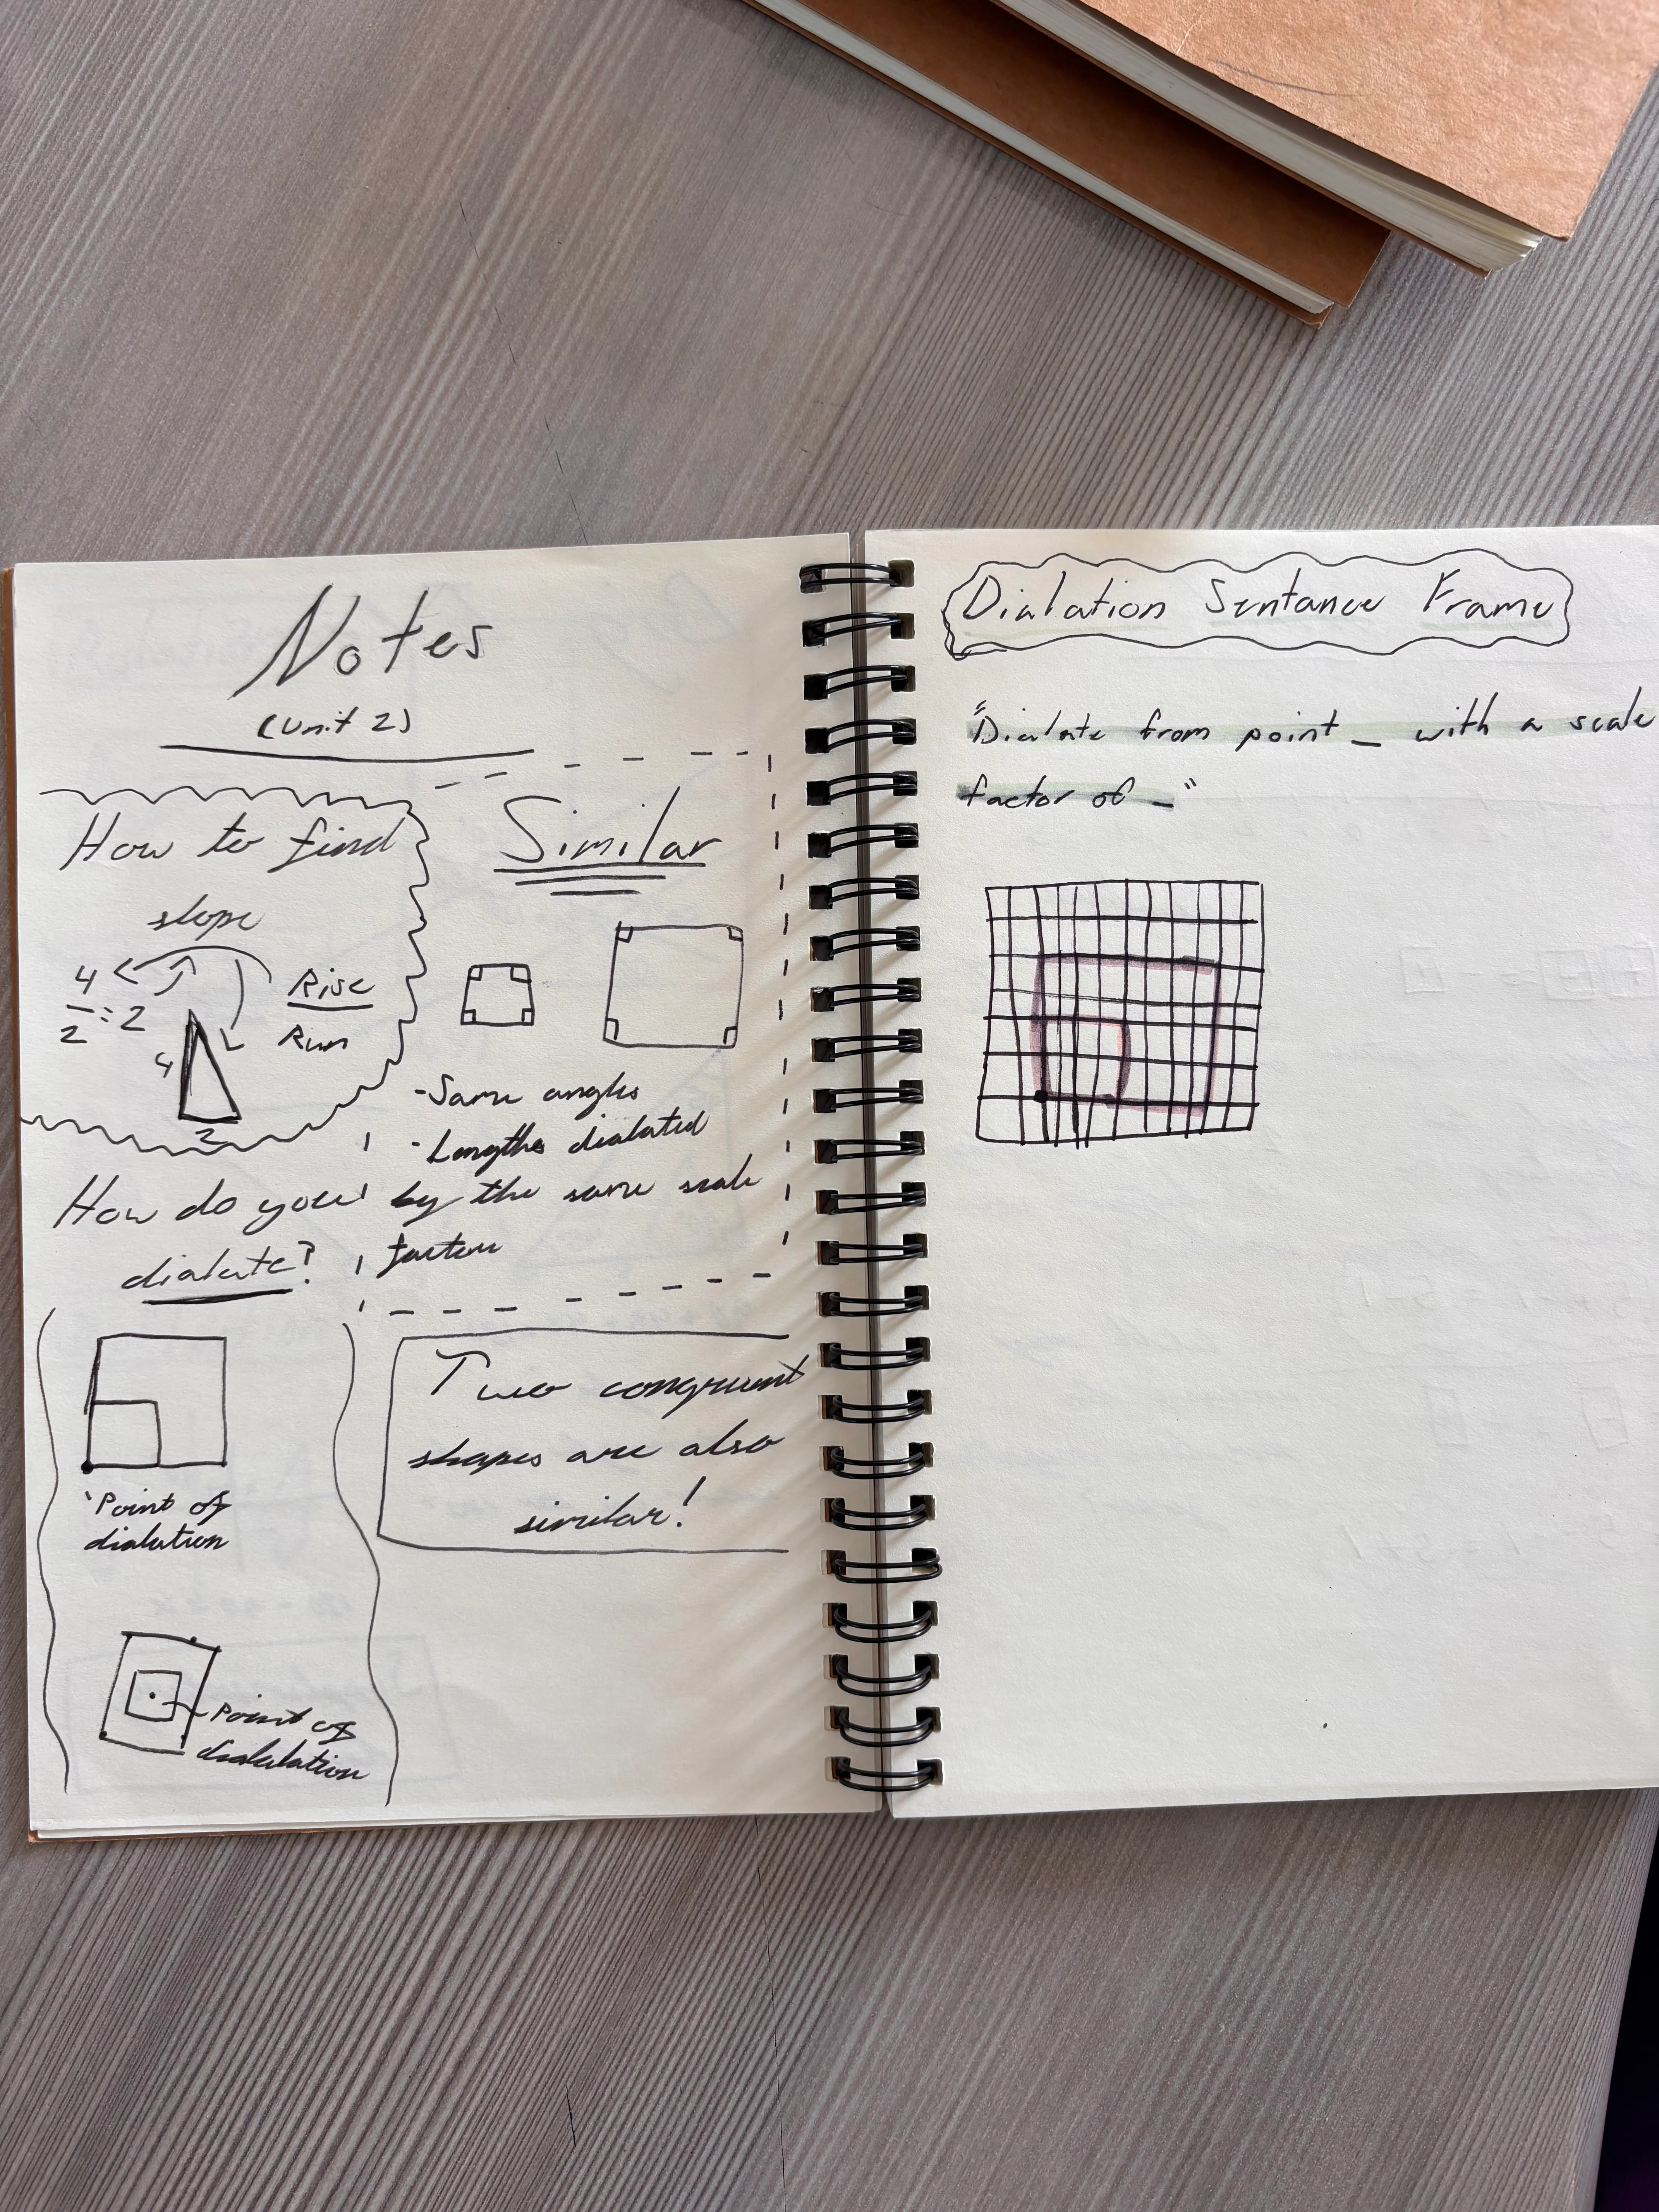 Notes
(Unit 2)
How to find
slope
4
2
:2
4
2
Rise
Run
Similar
-Same angles
-Lengths dialated
by the same scale
factor
How do you
dialate?
Point of
dialation
Point of
dialalation
Two congruent
shapes are also
similar!
Dialation Sentance Frame
"Dialate from point _ with a scale
factor of _"